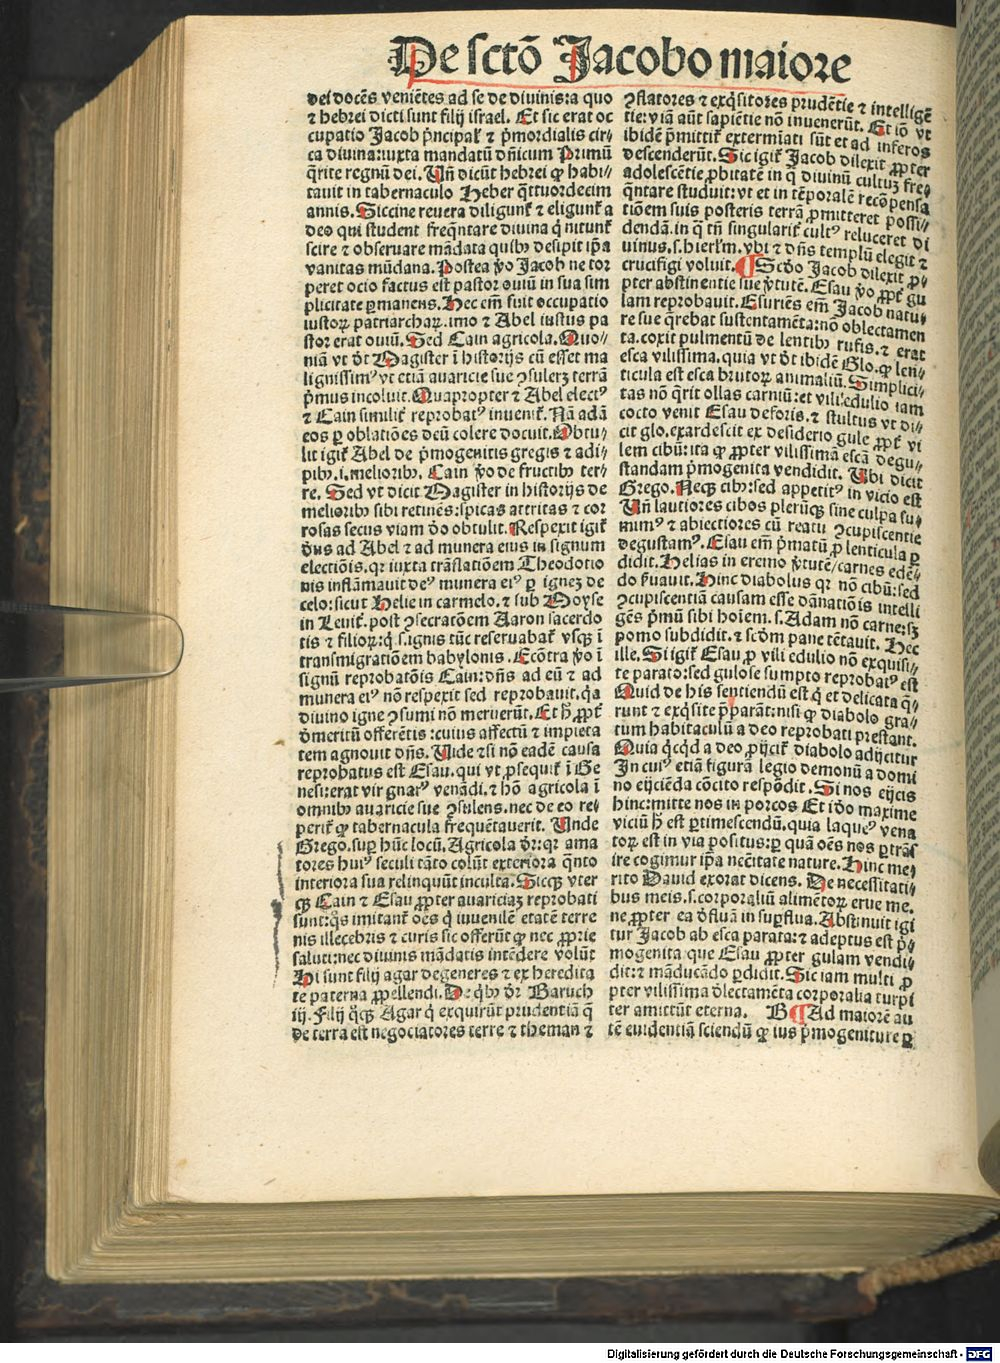 De sctō Jacobo maiore
dei docēs veniētes ad se de diuinis: a quo
⁊ hebrei dicti sunt filij israel. Et sic erat oc
cupatio Jacob p̄ncipal̄ ⁊ p̄mordialis cir⸗
ca diuina: iuxta mandatū dn̄icum Primū
q̄rite regnū dei. Vn̄ dicūt hebrei ꝙ habi⸗
tauit in tabernaculo Heber q̄ttuordecim
annis. Siccine reuera diligunt̄ ⁊ eligunt̄ a
deo qui student freq̄ntare diuina q̄ nitunt̄
scire ⁊ obseruare mādata quibꝰ desipit ip̄a
vanitas mūdana. Postea v̄o Jacob ne tor
peret ocio factus est pastor ouiū in sua sim
plicitate ꝑmanens. Hec em̄ fuit occupatio
iustoꝝ patriarchaꝝ. imo ⁊ Abel iustus pa
stor erat ouiū. Sed Cain agricola. Quo⸗
niā vt dt̄ Magister ī historijs cū esset ma
lignissimꝰ vt etiā auaricie sue ꝯsulerꝫ terrā
p̄mus incoluit. Quapropter ⁊ Abel electꝰ
⁊ Cain similit̄ reprobatꝰ inuenit̄. Nā adā
eos ꝑ oblatiōes deū colere docuit. Obtu⸗
lit igit̄ Abel de p̄mogenitis gregis ⁊ adi⸗
pibꝰ. i. melioribꝰ. Cain v̄o de fructibꝰ ter⸗
re. Sed vt dicit Magister in historijs de
melioribꝰ sibi retinēs: spicas attritas ⁊ cor
rosas secus viam d̄o obtulit. Respexit igit̄
dn̄s ad Abel ⁊ ad munera eius in signum
electiōis. qr iuxta trāslatiōem Theodotio
nis inflāmauit deꝰ munera eiꝰ ꝑ ignez de
celo: sicut Helie in carmelo. ⁊ sub Moyse
in Leuit̄. post ꝯsecratōem Aaron sacerdo
tis ⁊ filioꝝ: q̄ s. ignis tūc reseruabat̄ vsqꝫ ī
transmigratiōem babylonis. Ecōtra v̄o ī
signū reprobatōis Cain: dn̄s ad eū ⁊ ad
munera eiꝰ nō respexit sed reprobauit. q̄a
diuino igne ꝯsumi nō meruerūt. Et h̄ ꝓpt̄
d̄meritū offerētis: cuius affectū ⁊ impieta
tem agnouit dn̄s. Vide ⁊ si nō eadē causa
reprobatus est Esau. qui vt ꝓsequit̄ ī Ge
nesi: erat vir gnarꝰ venādi. ⁊ hō agricola ī
omnibꝰ auaricie sue ꝯsulens. nec de eo re⸗
perit̄ ꝙ tabernacula frequētauerit. Unde
Grego. suꝑ hūc locū. Agricola dr̄: qr ama
tores huiꝰ seculi tāto colūt exteriora q̄nto
interiora sua relinquūt inculta. Sicqꝫ vter
qꝫ Cain ⁊ Esau ꝓpter auariciaꝫ reprobati
sunt: q̄s imitant̄ oēs q̄ iuuenilē etatē terre
nis illecebris ⁊ curis sic offerūt ꝙ nec ꝓprie
saluti: nec diuinis mādatis intēdere volūt
Hi sunt filij agar degeneres ⁊ ex heredita
te paterna ꝓpellendi. De q̄bꝰ dr̄ Baruch
iij. Filij q̄qꝫ Agar q̄ exquirūt prudentiā q̄
de terra est negociatores terre ⁊ theman ⁊
ꝯflatores ⁊ exq̄sitores prudētie ⁊ intelligē
tie: viā aūt sapiētie nō inuenerūt. Et iō vt
ibidē p̄mittit̄ exterm̄iati sūt et ad inferos
descenderūt. Sic igit̄ Jacob dilexit ꝓpter
adolescētie ꝓbitatē in q̄ diuinū cultuꝫ fre⸗
q̄ntare studuit: vt et in tēporalē recōpensa
tiōem suis posteris terrā ꝓmitteret possi⸗
dendā. in q̄ tn̄ singularit̄ cultꝰ reluceret di
uinus. s. hierl'm. vbi ⁊ dn̄s templū elegit ⁊
crucifigi voluit. ¶ Scd̄o Jacob dilexit ꝓ⸗
pter abstinentie sue v̄tutē. Esau v̄o ꝓpt̄ gu
lam reprobauit. Esuriēs em̄ Jacob natu⸗
re sue q̄rebat sustentamēta: nō oblectamen
ta. coxit pulmentū de lentibꝰ rufis. ⁊ erat
esca vilissima. quia vt dt̄ ibidē Glo. ꝙ len⸗
ticula est esca brutoꝝ animaliū. Simplici⸗
tas nō q̄rit ollas carniū: et vili edulio iam
cocto venit Esau deforis. ⁊ stultus vt di⸗
cit glo. exardescit ex desiderio gule ꝓpt̄ vi
lem cibū: ita ꝙ ꝓpter vilissimā escā degu⸗
standam p̄mogenita vendidit. Vbi dicit
Grego. Neqꝫ cibꝰ: sed appetitꝰ in vicio est
Vn̄ lautiores cibos plerūqꝫ sine culpa su⸗
mimꝰ ⁊ abiectiores cū reatu ꝯcupiscentie
degustamꝰ. Esau em̄ p̄matū ꝓ lenticula ꝑ
didit. Helias in eremo v̄tutē carnes edē⸗
do ẜuauit. Hinc diabolus qr nō cibū: sed
ꝯcupiscentiā causam esse dānatiōis intelli
gēs p̄mū sibi hoīem. s. Adam nō carne: sꝫ
pomo subdidit. ⁊ scd̄m pane tētauit. Hec
ille. Si igit̄ Esau ꝓ vili edulio nō exquisi⸗
te parato: sed gulose sumpto reprobatꝰ est
Quid de his sentiendū est q̄ et delicata q̄⸗
runt ⁊ exq̄site p̄parāt: nisi ꝙ diabolo gra⸗
tum habitaculū a deo reprobati prestant.
Quia q̄cqd a deo ꝓijcit̄ diabolo adijcitur
In cuiꝰ etiā figurā legio demonū a domi
no eijciēda cōcito respōdit. Si nos eijcis
hinc: mitte nos in porcos Et id̄o maxime
viciū h̄ est ꝑtimescendū. quia laqueꝰ vena
toꝝ est in via positus: ꝑ quā oēs nos ꝑtrās
ire cogimur ip̄a necitate nature. Hinc me⸗
rito Dauid exorat dicens. De necessitati⸗
bus meis. s. corporaliū alimētoꝝ erue me.
ne ꝓpter ea d̄fluā in suꝑflua. Abstinuit igi
tur Jacob ab esca parata: ⁊ adeptus est p̄⸗
mogenita que Esau ꝓpter gulam vendi⸗
dit: ⁊ māducādo ꝑdidit. Sic iam multi ꝓ
pter vilissima d̄lectamēta corporalia turpi
ter amittūt eterna. B ¶ Ad maiorē au
tē euidentiā sciendū ꝙ ius p̄mogeniture ꝑ
Digitalisierung gefördert durch die Deutsche Forschungsgemeinschaft - DFG